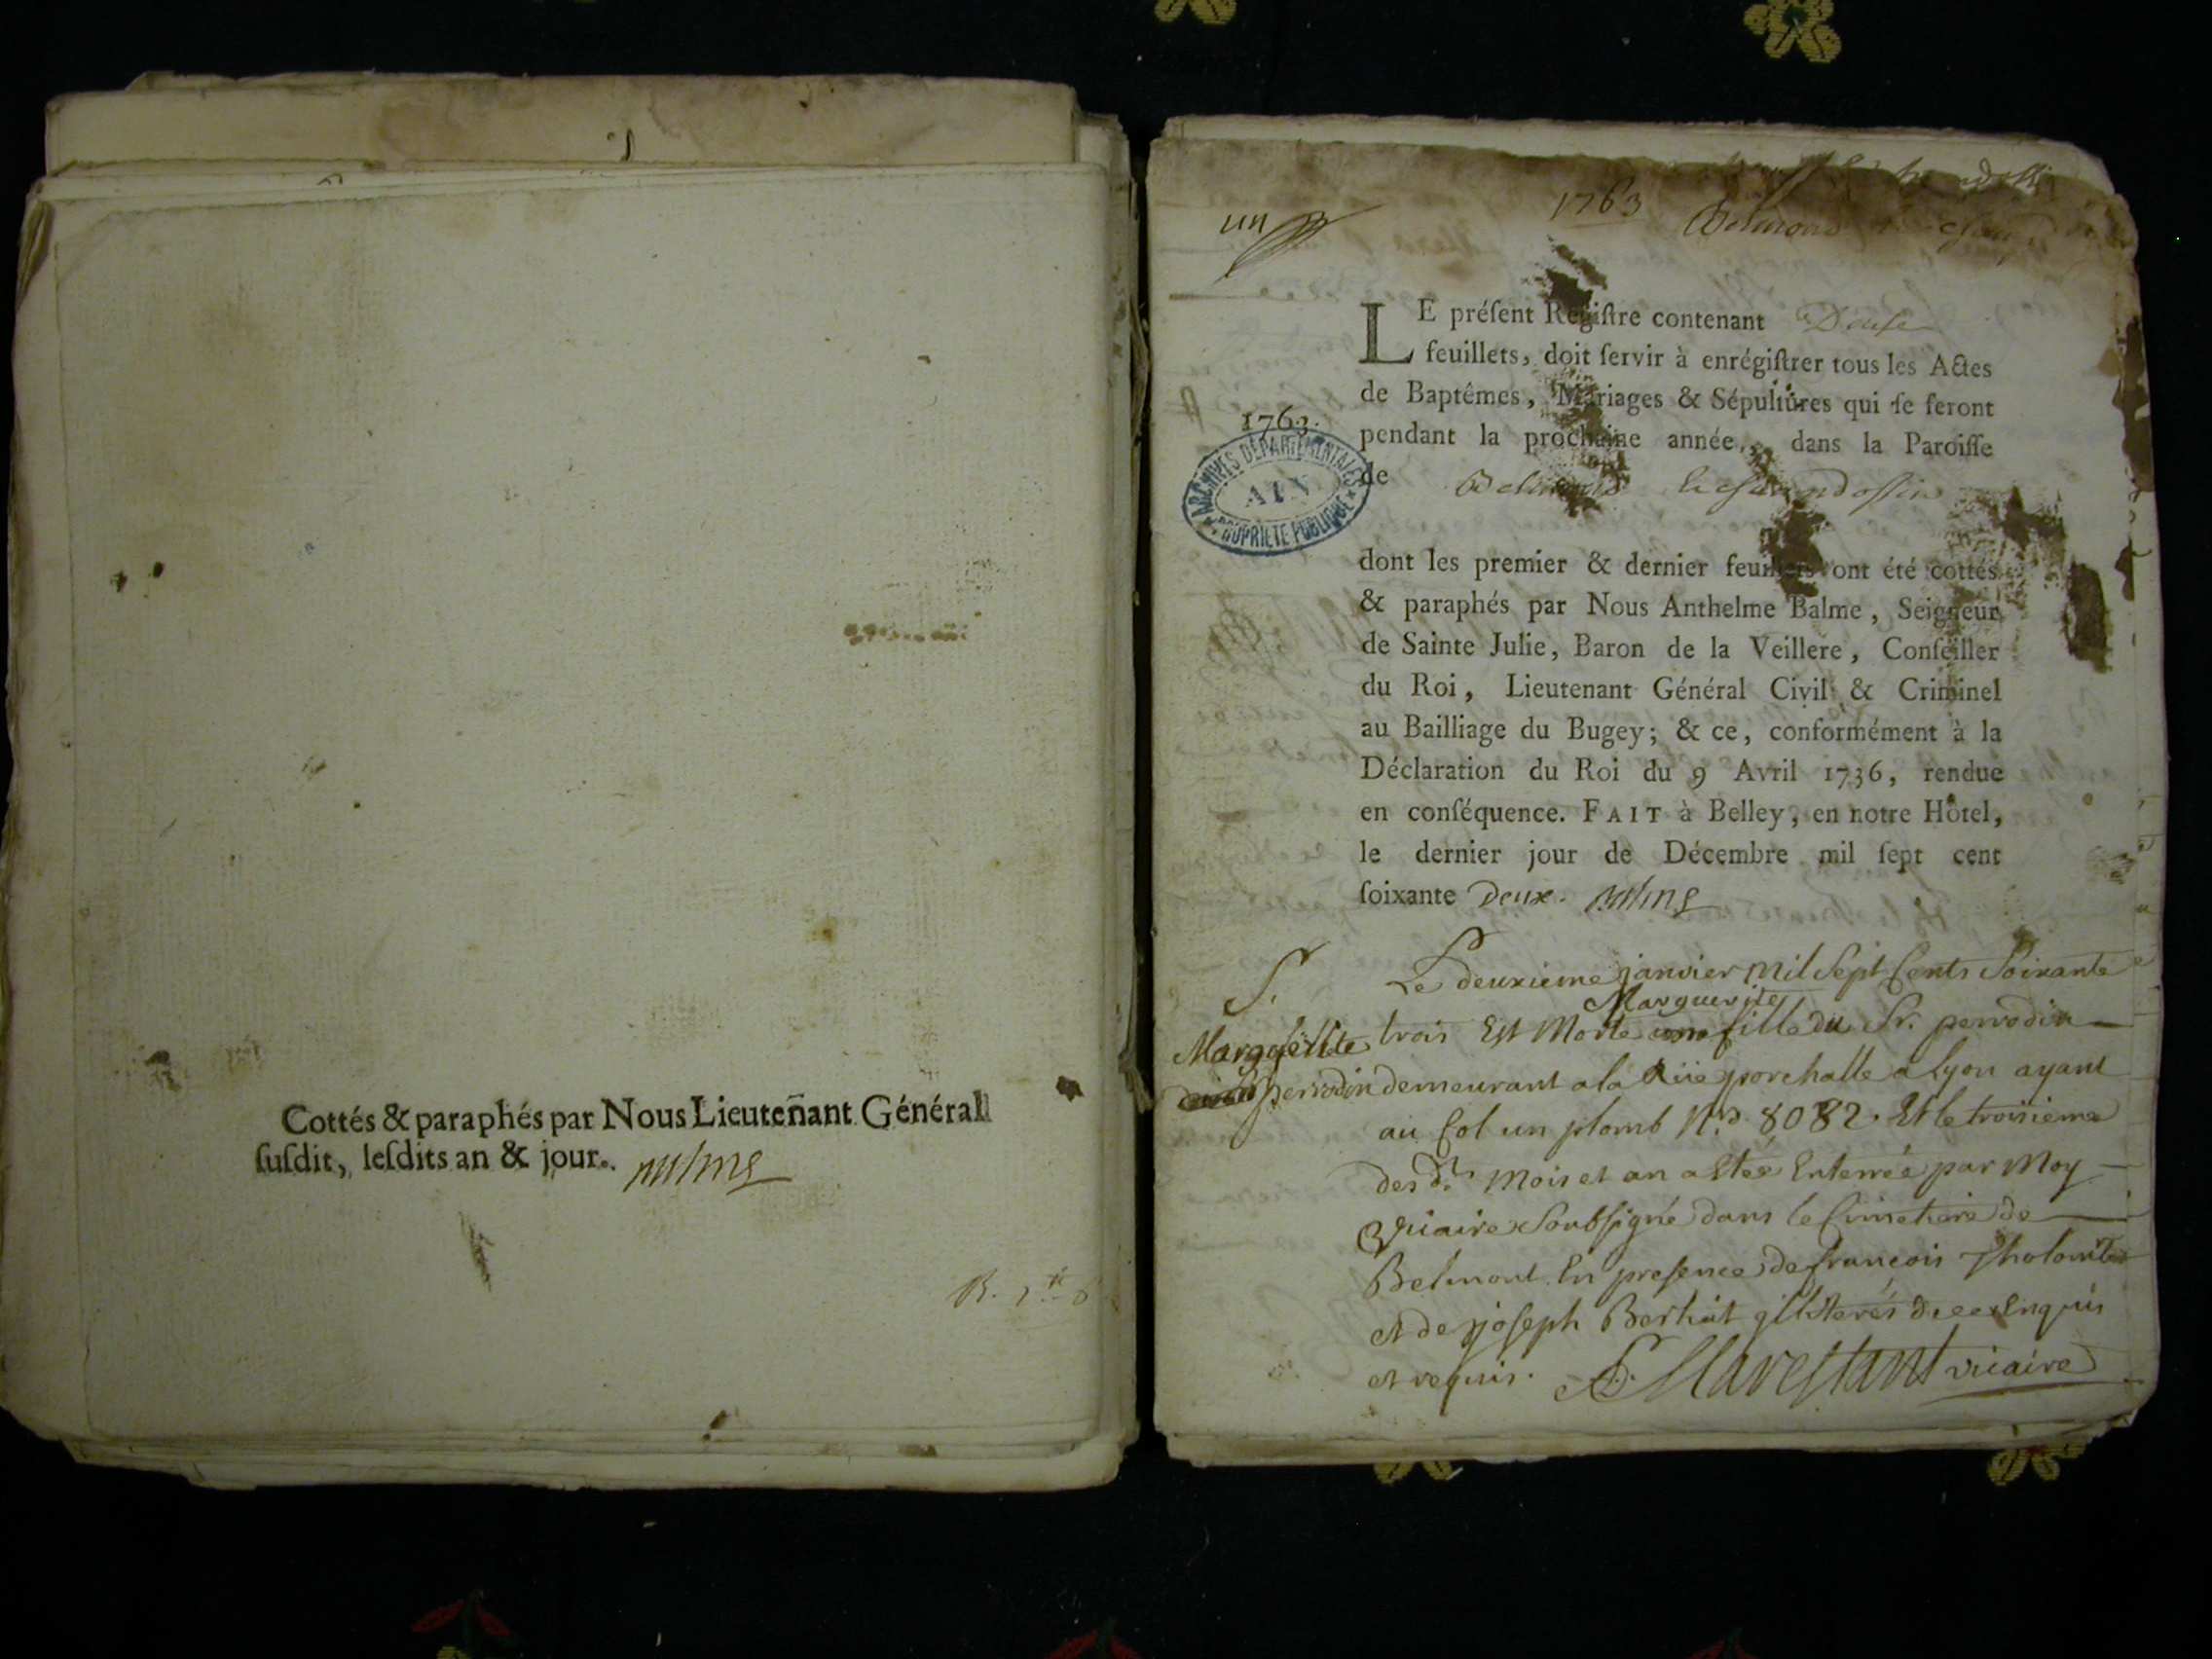 Cottés & paraphés par Nous Lieuteñant Général
ſuſdit, leſdits an & jour.
un
1763
Belmont
LE préſent Regiſtre contenant Douſe
feuillets, doit ſervir à enrégiſtrer tous les Actes
de Baptêmes, Mariages & Sépultures qui ſe feront
pendant la prochaine année, dans la Paroiſſe
de Belmont
1763.
ARCHIVES DÉPARTEMENTALES
AIN
PROPRIÉTÉ PUBLIQUE
dont les premier & dernier feuillets ont été cottés
& paraphés par Nous Anthelme Balme, Seigneur
de Sainte Julie, Baron de la Veillere, Conſeiller
du Roi, Lieutenant Général Civil & Criminel
au Bailliage du Bugey; & ce, conformément à la
Déclaration du Roi du 9 Avril 1736, rendue
en conſéquence. FAIT à Belley, en notre Hôtel,
le dernier jour de Décembre mil ſept cent
ſoixante Deux.
S.
Marguerite
perrodin
Le deuxieme janvier Mil Sept Cents Soixante
trois Est Morte Marguerite fille du Sr. perrodin
demeurant a la Rüe porchalle a Lyon ayant
au Col un plomb N.o 8082. Et le troisieme
des d.ts Mois et an a Etée Enterrée par Moy
Vicaire Soubsigné dans le Cimetiere de
Belmont. En presence de francois
et de joseph Berliat illiterés Enquis
et requis. vicaire